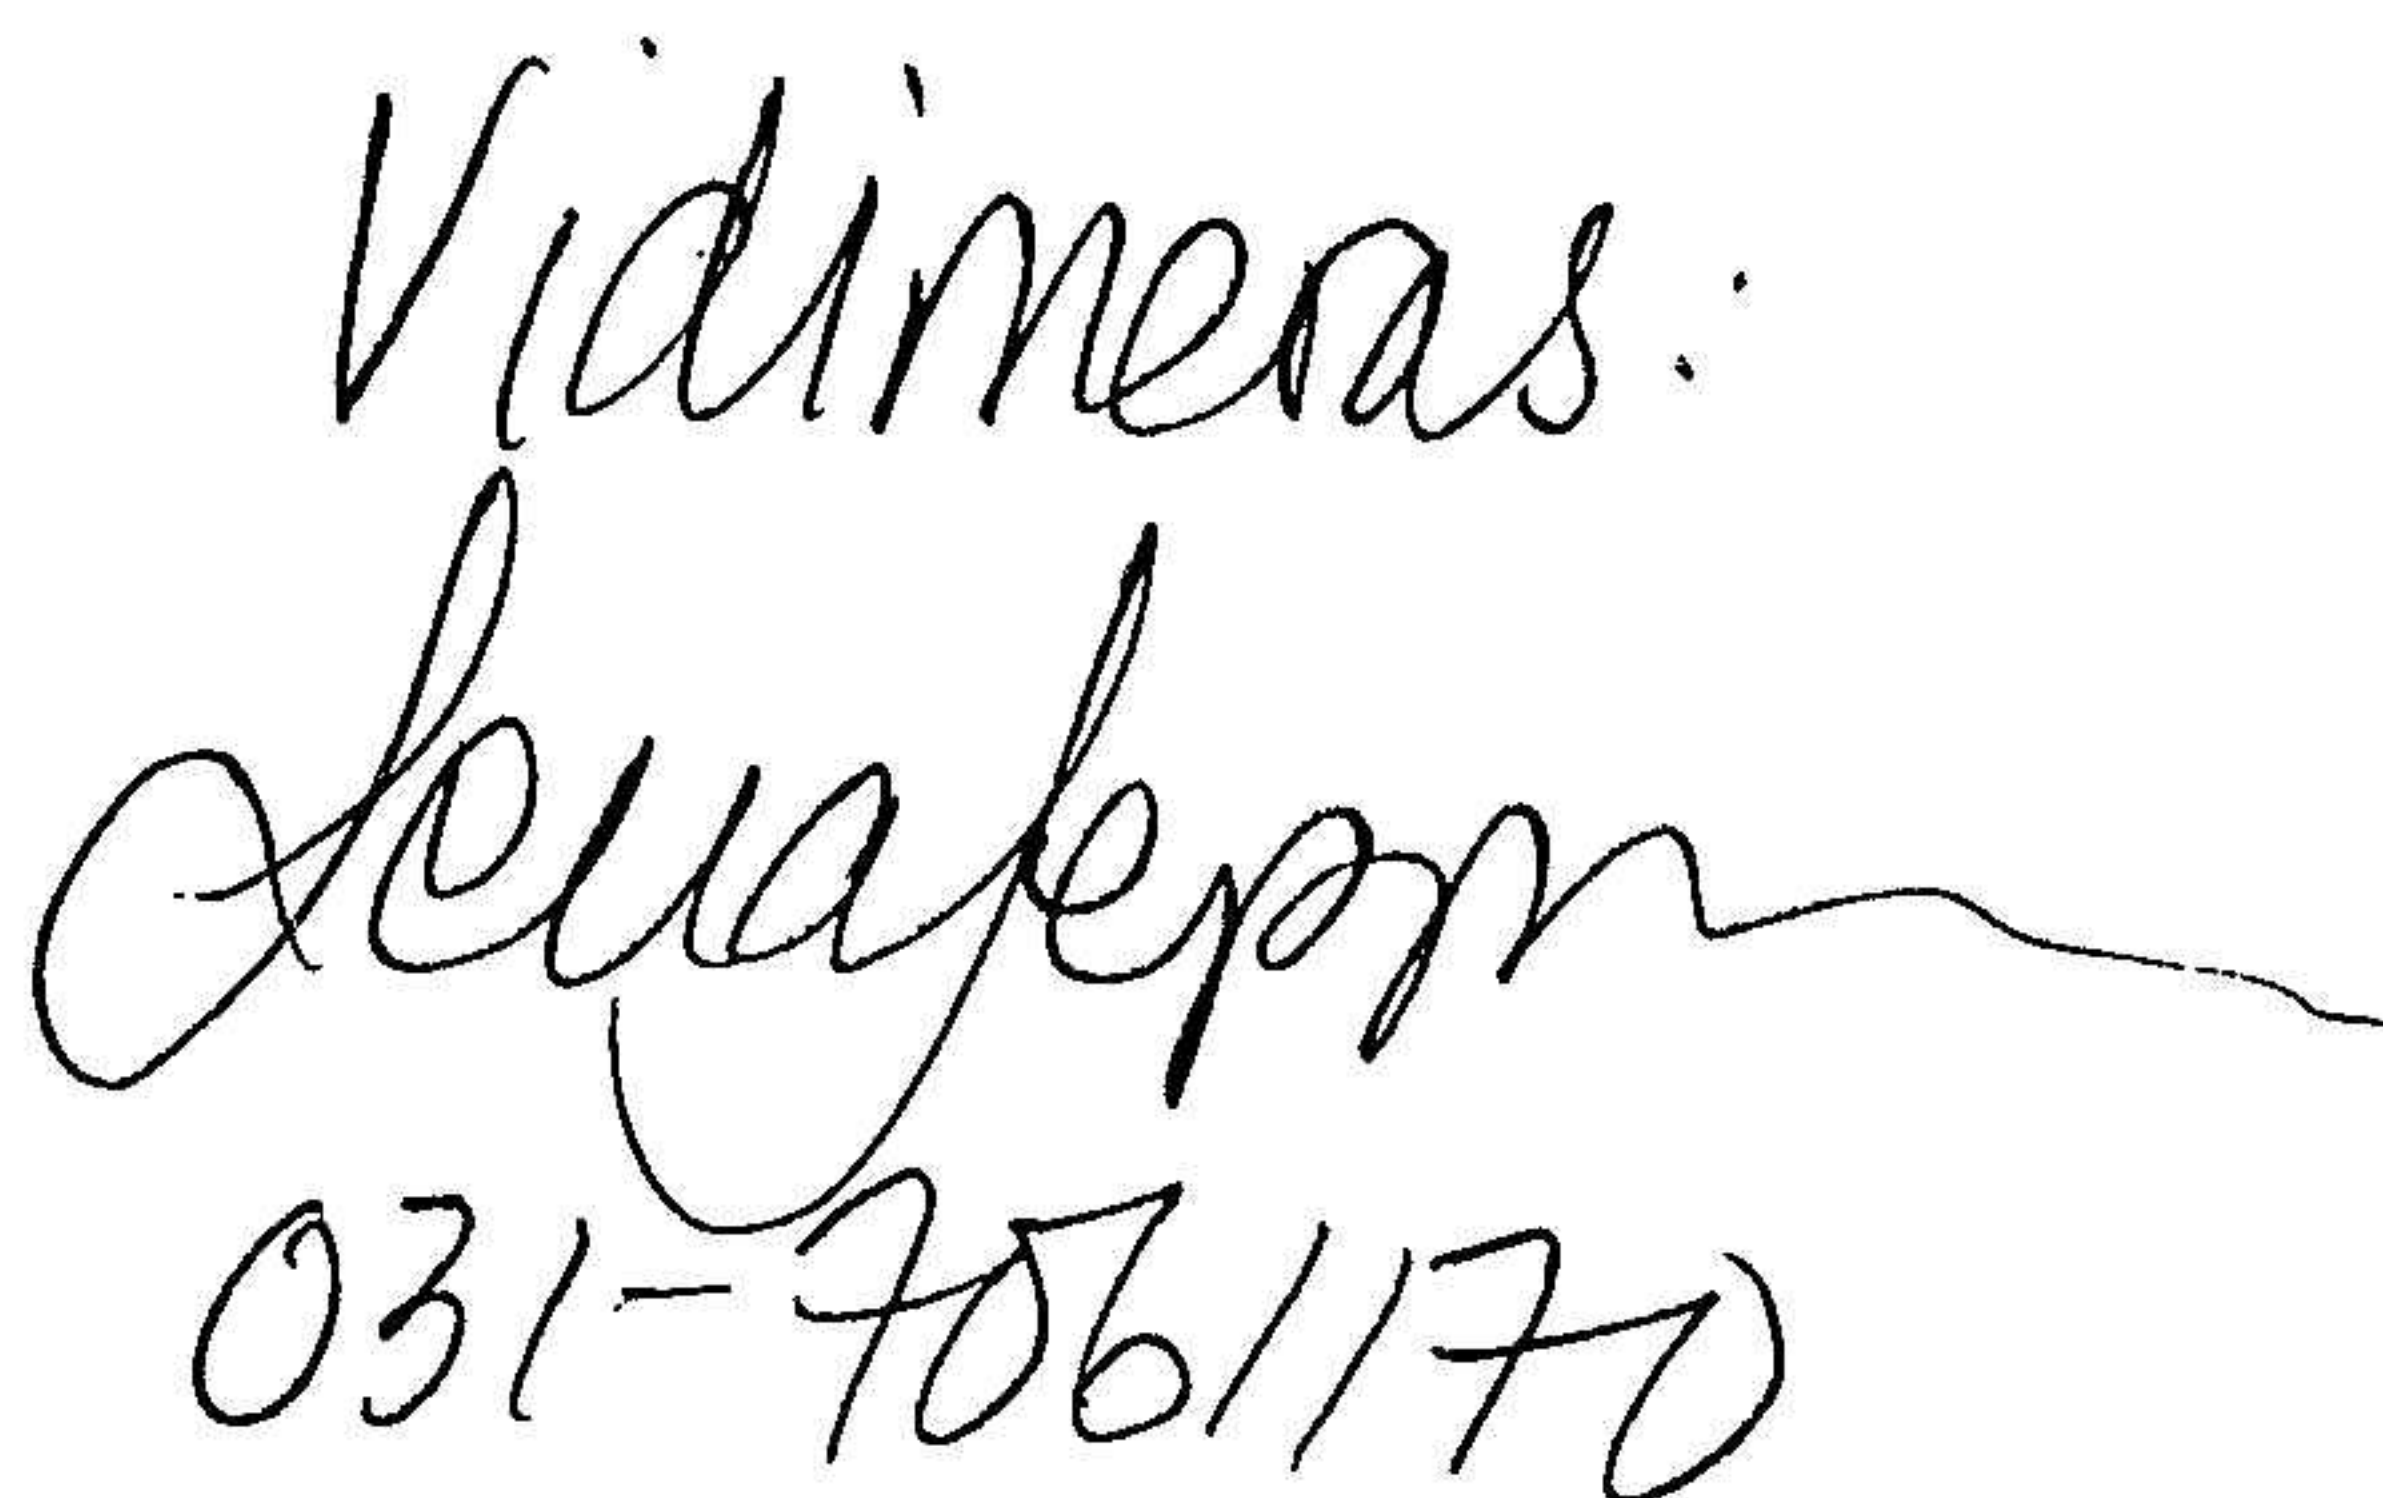 Vidimeras:
031-7061170